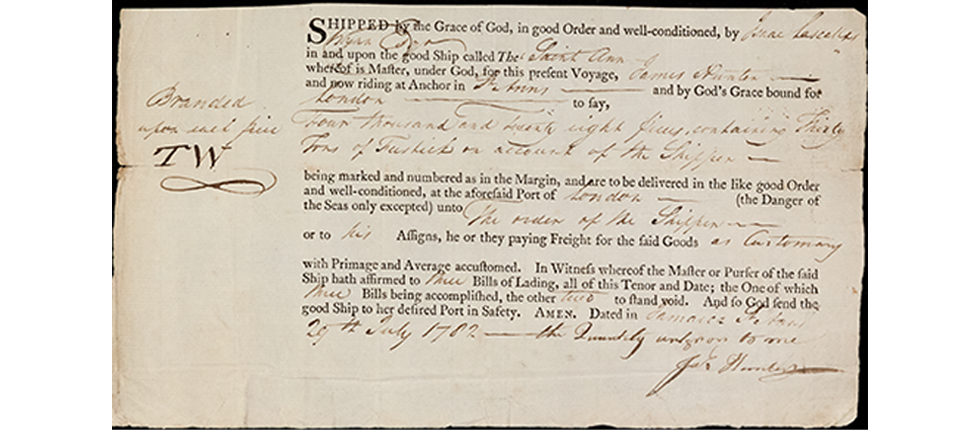 SHIPPED by the Grace of God, in good Order and well-conditioned, by Isaac Lascelles
Wynn Esqr
in and upon the good Ship called The Saint Ann
whereof is Master, under God, for this present Voyage, James Hunter
and now riding at Anchor in St Anns and by God's Grace bound for
London to say,
Four thousand and twenty eight pieces, containing Thirty
Tons of Fustick on account of the Shipper
Branded
upon each piece
TW
being marked and numbered as in the Margin, and are to be delivered in the like good Order
and well-conditioned, at the aforesaid Port of London (the Danger of
the Seas only excepted) unto The order of the Shipper
or to his Assigns, he or they paying Freight for the said Goods as Customary
with Primage and Average accustomed. In Witness whereof the Master or Purser of the said
Ship hath affirmed to three Bills of Lading, all of this Tenor and Date; the One of which
three Bills being accomplished, the other two to stand void. And so God send the
good Ship to her desired Port in Safety. AMEN. Dated in Jamaica St Anns
29th July 1782 the Quantity unknown to me
Jas Hunter